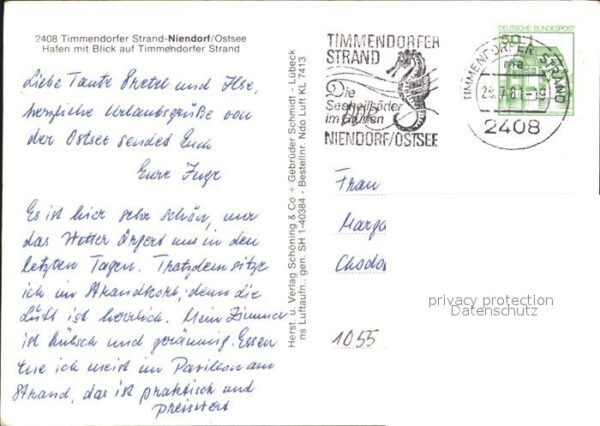 2408 Timmendorfer Strand-Niendorf/Ostsee
Hafen mit Blick auf Timmendorfer Strand
Liebe Tante Gretel und Ilse,
herzliche Urlaubsgrüße von
der Ostsee sendet Euch
Eure Inge
Es ist hier sehr schön, nur
das Wetter ärgert uns in den
letzten Tagen. Trotzdem sitze
ich im Strandkorb, denn die
Luft ist herrlich. Mein Zimmer
ist hübsch und geräumig. Essen
tue ich meist im Pavillon am
Strand, das ist praktisch und
preiswert
Herst. u. Verlag Schöning & Co + Gebrüder Schmidt - Lübeck
ns Luftaufn., gen. SH 1-40384 - Bestellnr. Ndo Luft KL 7413
TIMMENDORFER
STRAND
Die
Seeheilbäder
im Grünen
NIENDORF/OSTSEE
TIMMENDORFER STRAND
2408
DEUTSCHE BUNDESPOST
Frau
Marga
Chodo
1055
privacy protection
Datenschutz